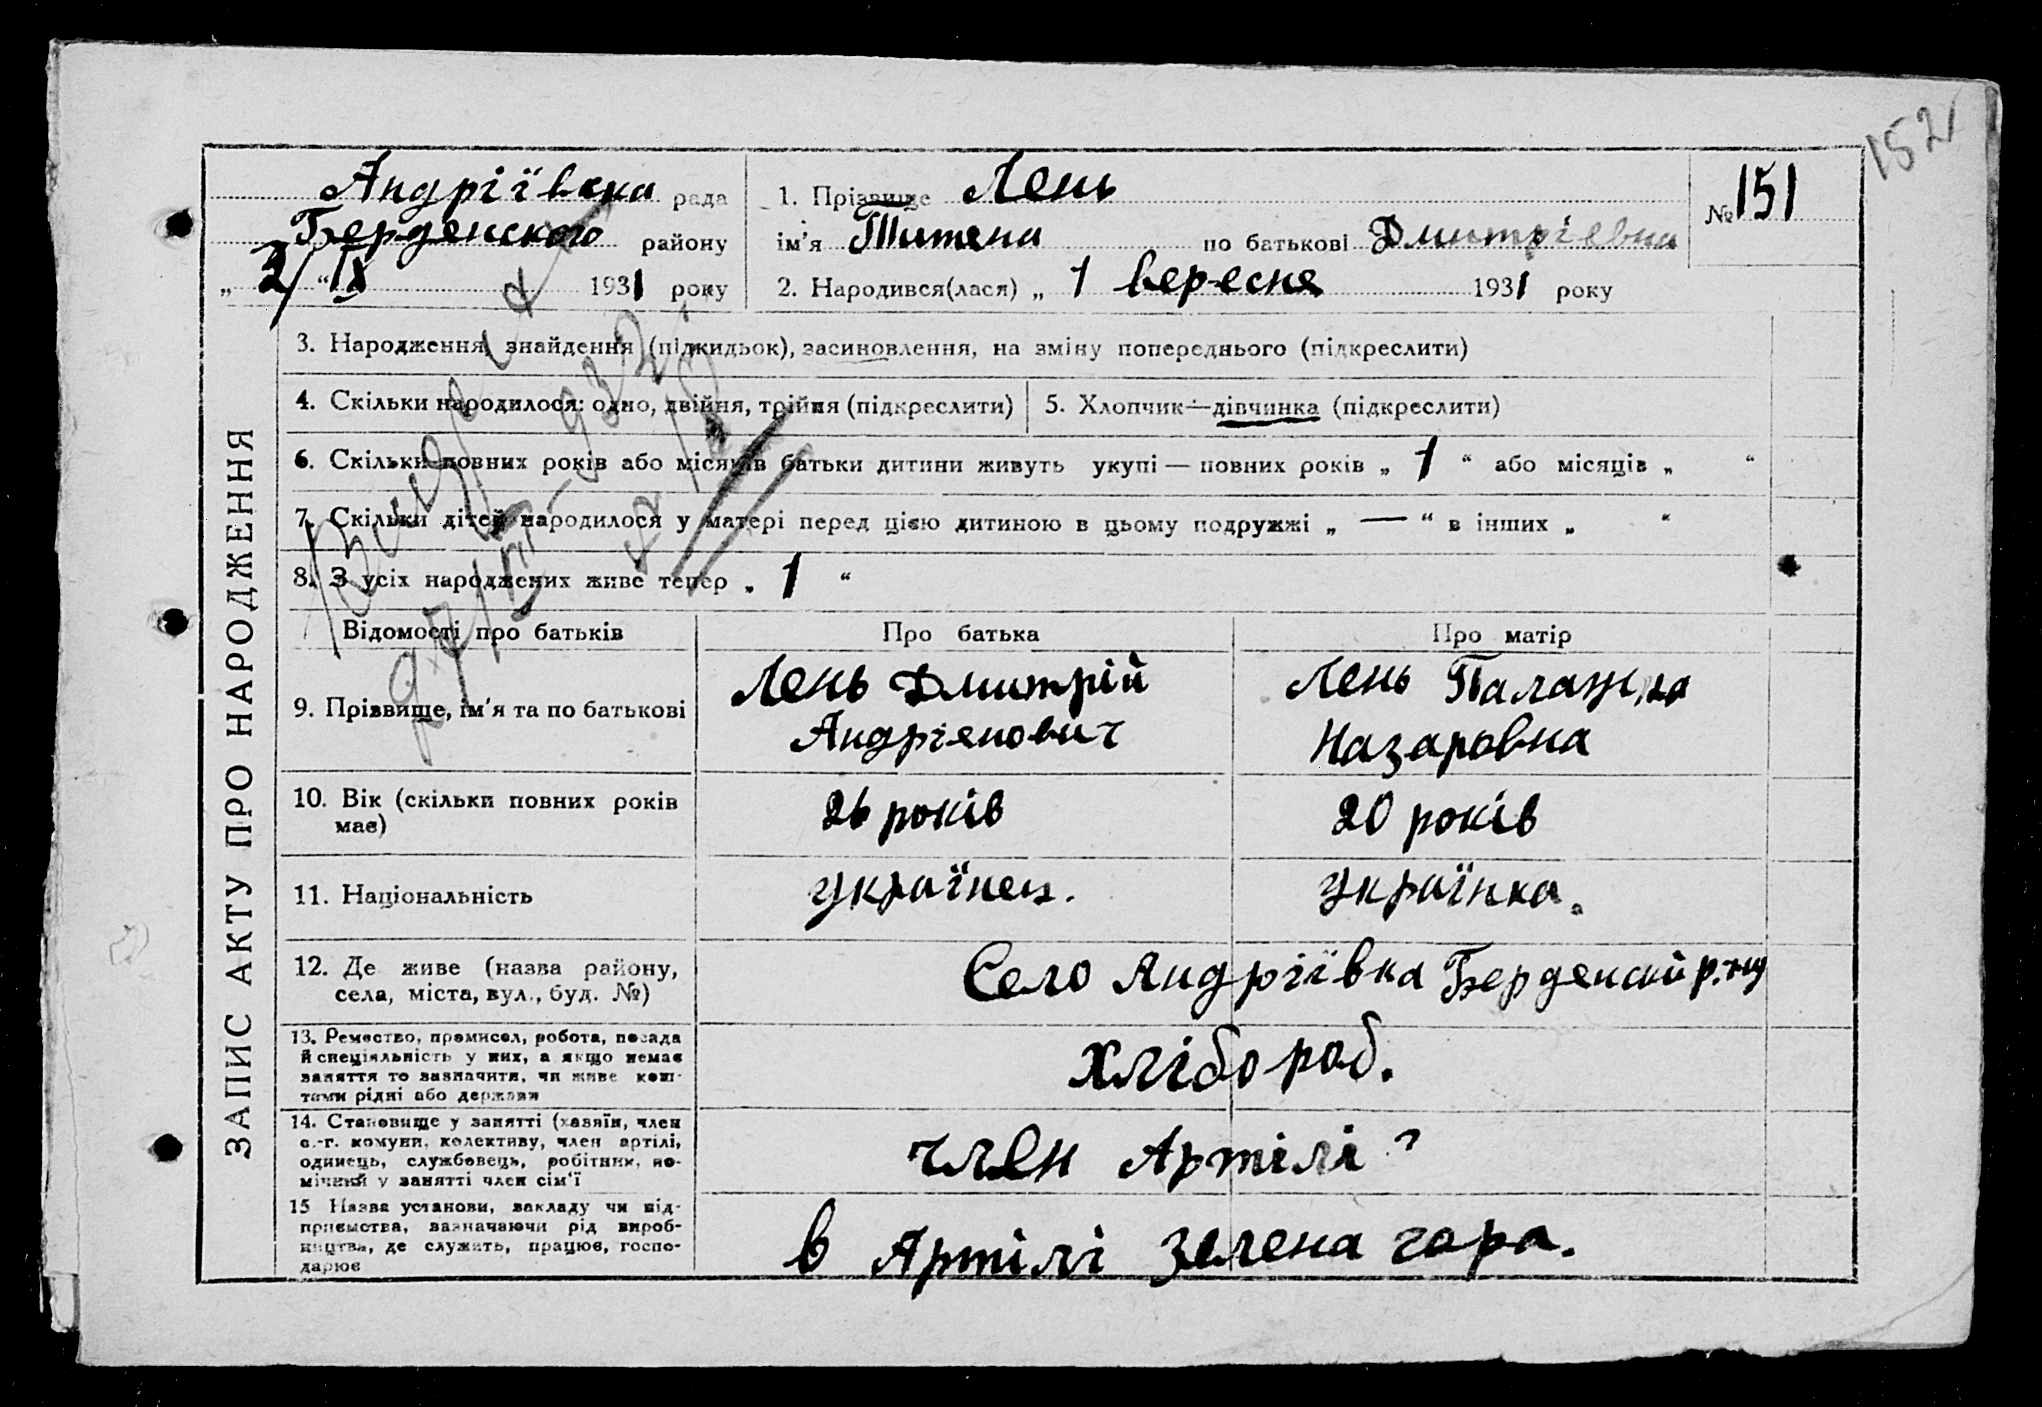 152
Андріївска рада
Берденского району
„ 3/ “ IX 1931 року
1. Прізвище Лень
ім'я Титена по батькові Дмитріевна
2. Народився(лася) „ 1 вересня 1931 року
№ 151
ЗАПИС АКТУ ПРО НАРОДЖЕННЯ
3. Народження, знайдення (підкидьок), засиновлення, на зміну попереднього (підкреслити)
4. Скільки народилося: одно, двійня, трійня (підкреслити)
5. Хлопчик—дівчинка (підкреслити)
6. Скільки повних років або місяців батьки дитини живуть укупі — повних років „ 1 “ або місяців „ “
7. Скільки дітей народилося у матері перед цією дитиною в цьому подружжі „ — “ в інших „ “
8. З усіх народжених живе тепер „ 1 “
Відомості про батьків
Про батька
Про матір
9. Прізвище, ім'я та по батькові
Лень Дмитрій
Андріянович
Лень Палажка
Назаровна
10. Вік (скільки повних років
має)
26 років
20 років
11. Національність
українец.
українка.
12. Де живе (назва району,
села, міста, вул., буд. №)
Село Андріївка Берденский р.-ну
13. Ремество, промисел, робота, посада
й спеціяльність у них, а якщо немає
заняття то зазначити, чи живе кош-
тами рідні або держави
Хлібороб.
14. Становище у занятті (хазяїн, член
с.-г. комуни, колективу, член артілі,
одинець, службовець, робітник, по-
мічний у занятті член сім'ї
член Артілі
15 Назва установи, закладу чи під-
приємства, зазначаючи рід вироб-
ництва, де служить, працює, госпо-
дарює
в Артілі Зелена гора.